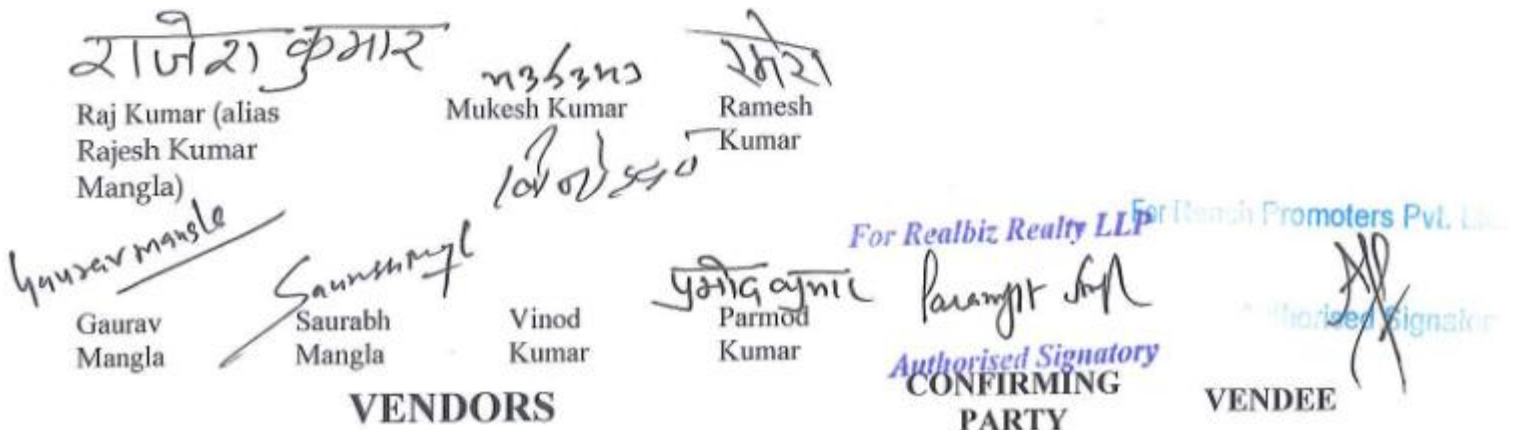 राजेश कुमार
Raj Kumar (alias
Rajesh Kumar
Mangla)
Mukesh Kumar
रमेश
Ramesh
Kumar
Gaurav Mangla
Gaurav
Mangla
Saurabh
Mangla
Vinod
Kumar
प्रमोद कुमार
Parmod
Kumar
VENDORS
For Realbiz Realty LLP
Authorised Signatory
CONFIRMING
PARTY
Promoters Pvt.
Signator
VENDEE